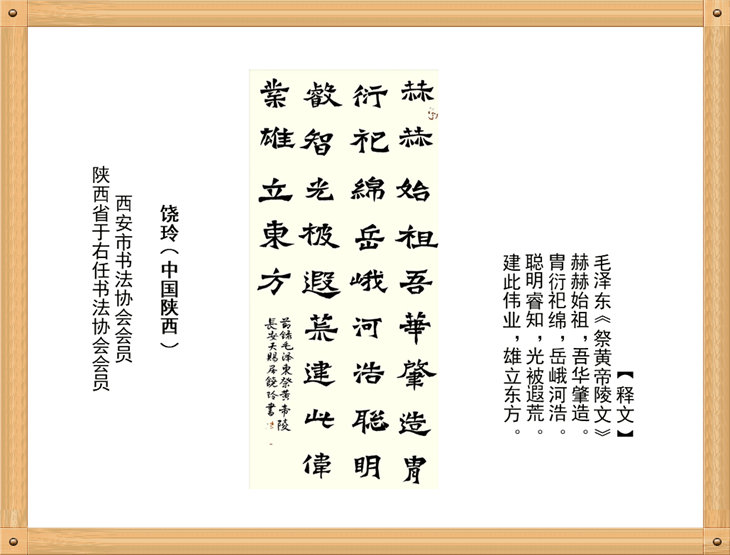 【释文】
毛泽东《祭黄帝陵文》
赫赫始祖，吾华肇造。
胄衍祀绵，岳峨河浩。
聪明睿知，光被遐荒。
建此伟业，雄立东方。
赫赫始祖吾華肇造胄
衍祀綿岳峨河浩聪明
叡智光被遐荒建此偉
業雄立東方
节録毛泽東祭黄帝陵
長安天賜居饒玲書
饶玲（中国陕西）
西安市书法协会会员
陕西省于右任书法协会会员